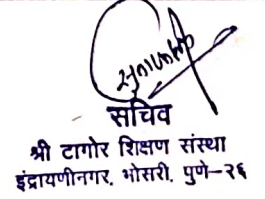 सचिव
श्री टागोर शिक्षण संस्था
इंद्रायणीनगर, भोसरी, पुणे-२६